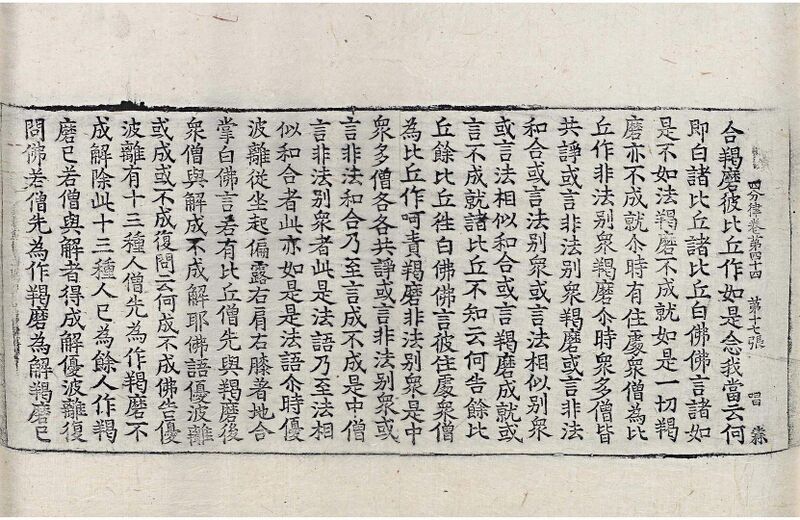 四分律卷第四十四 第七張
合羯磨彼比丘作如是念我當云何
即白諸比丘諸比丘白佛佛言諸如
是不如法羯磨不成就如是一切羯
磨亦不成就尒時有住處衆僧為比
丘作非法別衆羯磨尒時衆多僧皆
共諍或言非法別衆羯磨或言非法
和合或言法別衆或言法相似別衆
或言法相似和合或言羯磨成就或
言不成就諸比丘不知云何告餘比
丘餘比丘徃白佛佛言彼住處衆僧
為比丘作呵責羯磨非法別衆是中
衆多僧各各共諍或言非法別衆或
言非法和合乃至言成不成是中僧
言非法別衆者此是法語乃至法相
似和合者此亦如是是法語尒時優
波離從坐起偏露右肩右膝著地合
掌白佛言若有比丘僧先與羯磨後
衆僧與解成不成解耶佛語優波離
或成或不成復問云何成不成佛告優
波離有十三種人僧先為作羯磨不
成解除此十三種人已為餘人作羯
磨已若僧與解者得成解優波離復
問佛若僧先為作羯磨為解羯磨已